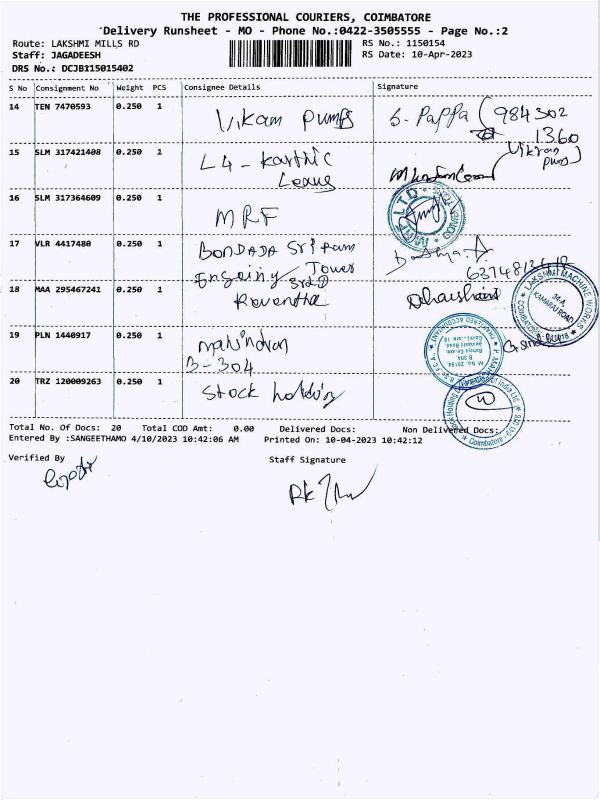 THE PROFESSIONAL COURIERS, COIMBATORE
Delivery Runsheet - MO - Phone No.:0422-3505555 - Page No.:2
Route: LAKSHMI MILLS RD
RS No.: 1150154
Staff: JAGADEESH
RS Date: 10-Apr-2023
DRS No.: DCJB115015402
S No Consignment No Weight PCS Consignee Details Signature
14 TEN 7470593 0.250 1 Vikam Pumps S. Pappa (984302
1360
Vikram
Pums)
15 SLM 317421408 0.250 1 L4 - Karthic
16 SLM 317364609 0.250 1 MRF
MRF LTD
17 VLR 4417480 0.250 1 BONDADA Sri Ram
Tower
3rd
18 MAA 295467241 0.250 1 Revantha Dharshini
LAKSHMI MACHINE WORKS
34-A,
KAMARAJ ROAD
COIMBATORE
19 PLN 1440917 0.250 1
B-304
CHARTERED ACCOUNTANT
20 TRZ 120009263 0.250 1 Stock holding
Stock Holding Corporation of India Ltd
Coimbatore
Total No. Of Docs: 20 Total COD Amt: 0.00 Delivered Docs: Non Delivered Docs:
Entered By :SANGEETHAMO 4/10/2023 10:42:06 AM Printed On: 10-04-2023 10:42:12
Verified By Staff Signature